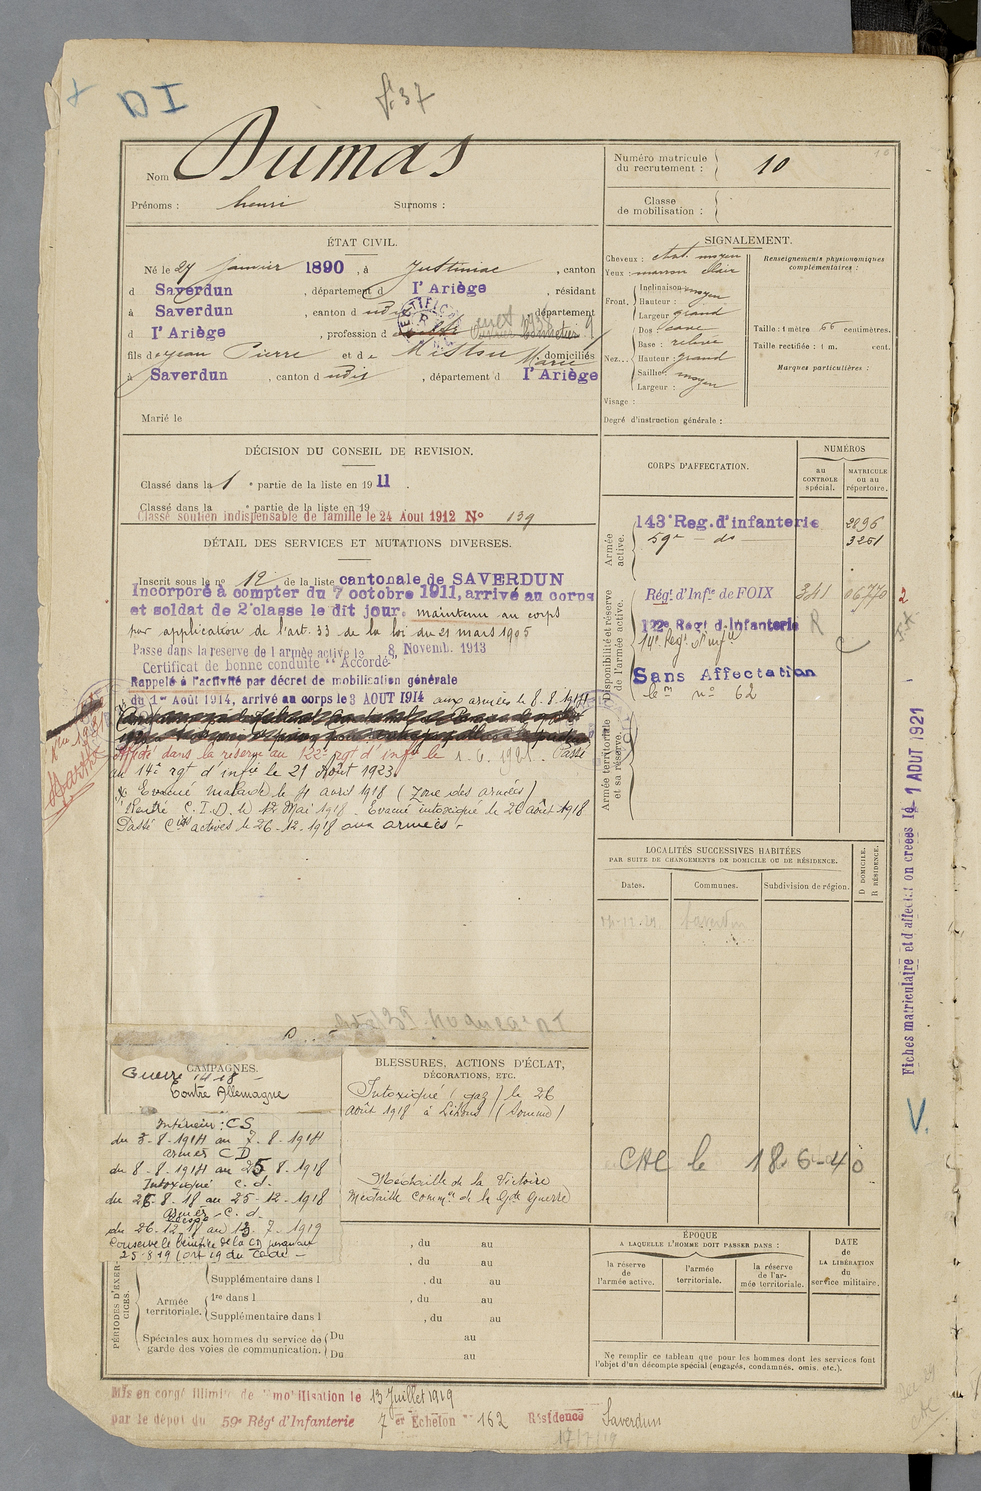 DI
f. 37
Nom : Dumas
Prénoms : henri Surnoms :
Numéro matricule du recrutement : 10
Classe de mobilisation :
ÉTAT CIVIL.
Né le 27 janvier 1890, à Justiniac, canton
d Saverdun, département d l'Ariège, résidant
à Saverdun, canton d udit, département
d l'Ariège, profession d
fils de Jean Pierre et de Marie domiciliés
à Saverdun, canton d udit, département d l'Ariège
Marié le
SIGNALEMENT.
Cheveux : chat. moyen
Yeux : marron clair
Front, Inclinaison moyen
Hauteur : moyen
Largeur grand
Nez... Dos cave
Base : relevé
Hauteur : grand
Saillie : moyen
Largeur : moyen
Visage :
Degré d'instruction générale :
Renseignements physionomiques complémentaires :
Taille : 1 mètre 66 centimètres.
Taille rectifiée : 1 m. cent.
Marques particulières :
DÉCISION DU CONSEIL DE REVISION.
Classé dans la 1e partie de la liste en 1911.
Classé dans la e partie de la liste en 19
Classé soutien indispensable de famille le 24 Aout 1912 N° 139
DÉTAIL DES SERVICES ET MUTATIONS DIVERSES.
Inscrit sous le n° 12 de la liste cantonale de SAVERDUN
Incorporé à compter du 7 octobre 1911, arrivé au corps
et soldat de 2e classe le dit jour. maintenu au corps
par application de l'art. 33 de la loi du 21 mars 1905
Passé dans la réserve de l'armée active le 8 Novemb. 1913
Certificat de bonne conduite "Accordé"
Rappelé à l'activité par décret de mobilisation générale
du 1er Août 1914, arrivé au corps le 3 AOUT 1914 aux armées le 8.8.1914
Affecté dans la réserve au 122e rgt d'infie le 1.6.1921. Passé
au 14e rgt d'infie le 21 Août 1923
Evacué malade le 11 avril 1918 (Zone des armées)
Rentré C.I.D. le 12 Mai 1918. Evacué intoxiqué le 26 août 1918
Passé Cies actives le 26-12-1918 aux armées.
CORPS D'AFFECTATION.
NUMÉROS
au CONTROLE spécial.
MATRICULE ou au répertoire.
Armée active.
143e Reg. d'infanterie 2896
59e do 3251
Disponibilité et réserve de l'armée active.
Régt d'Infie de FOIX 341 06770
122e Regt d'Infanterie R
14e Regt d'infie C
Sans Affectation
n° 62
Armée territoriale et sa réserve.
LOCALITÉS SUCCESSIVES HABITÉES
PAR SUITE DE CHANGEMENTS DE DOMICILE OU DE RÉSIDENCE.
Dates. Communes. Subdivision de région. D DOMICILE. R RÉSIDENCE.
Saverdun
CAC le 18-6-40
Fiches matriculaire et d'affectation créées le 1 AOUT 1921
V.
CAMPAGNES.
Guerre 14-18
Contre Allemagne
Intérieur : CS
du 3-8-1914 au 7-8-1914
armées CD
du 8-8-1914 au 25-8-1918
Intoxiqué c.d.
du 26-8-18 au 25-12-1918
armées c.d.
du 26-12-18 au 13-7-1919
Conserve le bénéfice de la CD jusqu'au
25-8-19 (art 19 du Code
BLESSURES, ACTIONS D'ÉCLAT,
DÉCORATIONS, ETC.
Intoxiqué (gaz) le 26
août 1918 à Lihons (Somme)
Médaille de la Victoire
Médaille Commve de la Gde Guerre
PÉRIODES D'EXERCICES.
, du au
, du au
Supplémentaire dans l , du au
Armée territoriale. 1re dans l , du au
Supplémentaire dans l , du au
Spéciales aux hommes du service de garde des voies de communication. Du au
Du au
ÉPOQUE
A LAQUELLE L'HOMME DOIT PASSER DANS :
la réserve de l'armée active.
l'armée territoriale.
la réserve de l'armée territoriale.
DATE de LA LIBÉRATION du service militaire.
Ne remplir ce tableau que pour les hommes dont les services font
l'objet d'un décompte spécial (engagés, condamnés, omis, etc.).
Mis en congé illimité de démobilisation le 13 Juillet 1919
par le dépôt du 59e Régt d'Infanterie 7er Echelon n° 162 Résidence Saverdun